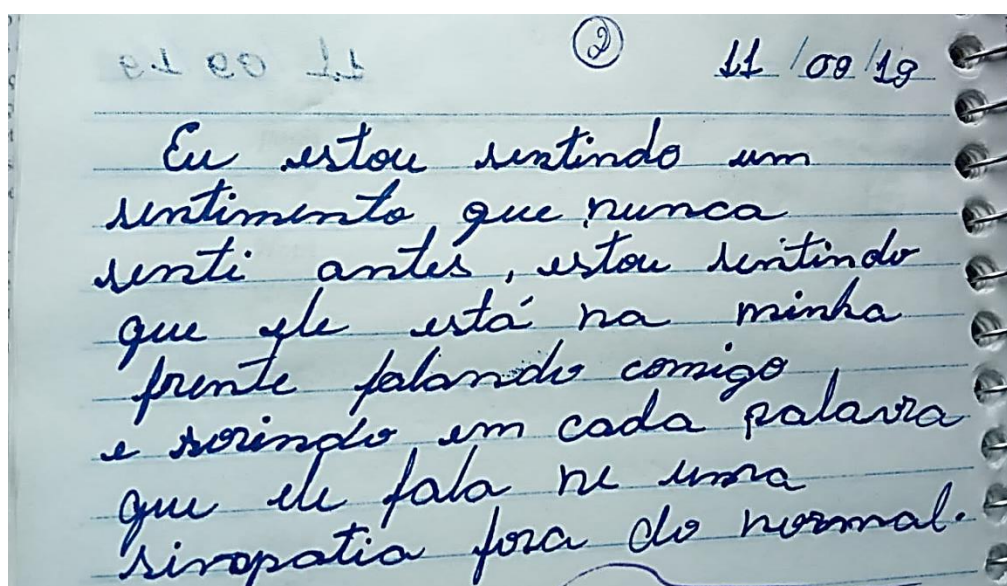 ② 11/09/19
Eu estou sentindo um
sentimento que nunca
senti antes, estou sentindo
que ele está na minha
frente falando comigo
e sorindo em cada palavra
que ele fala ne uma
simopatia fora do normal.